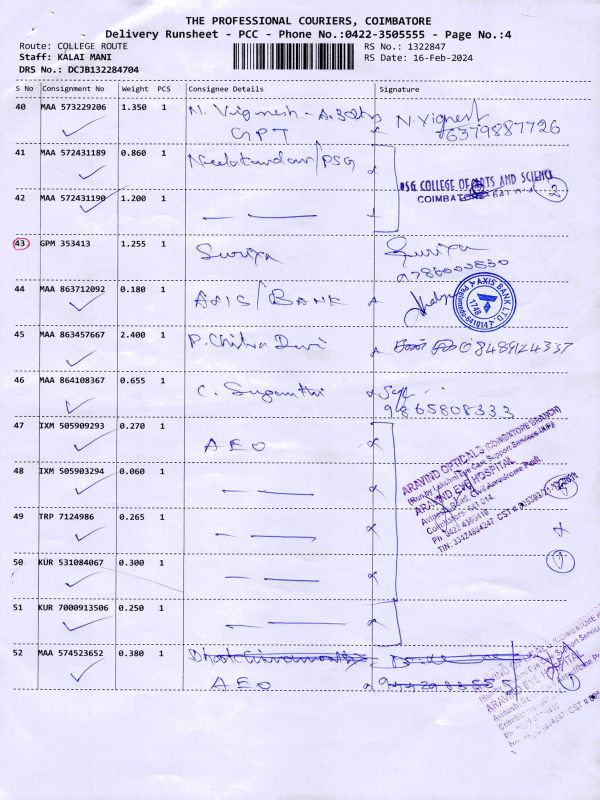 THE PROFESSIONAL COURIERS, COIMBATORE
Delivery Runsheet - PCC - Phone No.:0422-3505555 - Page No.:4
Route: COLLEGE ROUTE
RS No.: 1322847
Staff: KALAI MANI
RS Date: 16-Feb-2024
DRS No.: DCJB132284704
S No Consignment No Weight PCS Consignee Details Signature
40 MAA 573229206 1.350 1 N. Vignesh - N. Vignesh
GPT 6379887726
41 MAA 572431189 0.860 1 Neelakandan/PSG
PSG COLLEGE OF ARTS AND SCIENCE
42 MAA 572431190 1.200 1 2
COIMBATORE
43 GPM 353413 1.255 1 Suriya Suriya
44 MAA 863712092 0.180 1 AXIS/BANK
AXIS BANK LTD.
45 MAA 863457667 2.400 1 P. Chitra Devi 8489124337
46 MAA 864108367 0.655 1 C. Suganthi
9865808333
47 IXM 505909293 0.270 1 AEO
ARAVIND OPTICALS (COIMBATORE BRANCH)
(Run by Lakshmi Eye Care Support Services LLP)
ARAVIND EYE HOSPITAL
Coimbatore - 641 014.
48 IXM 505903294 0.060 1
49 TRP 7124986 0.265 1
50 KUR 531084067 0.300 1
51 KUR 7000913506 0.250 1
52 MAA 574523652 0.380 1
AEO
ARAVIND EYE HOSPITAL